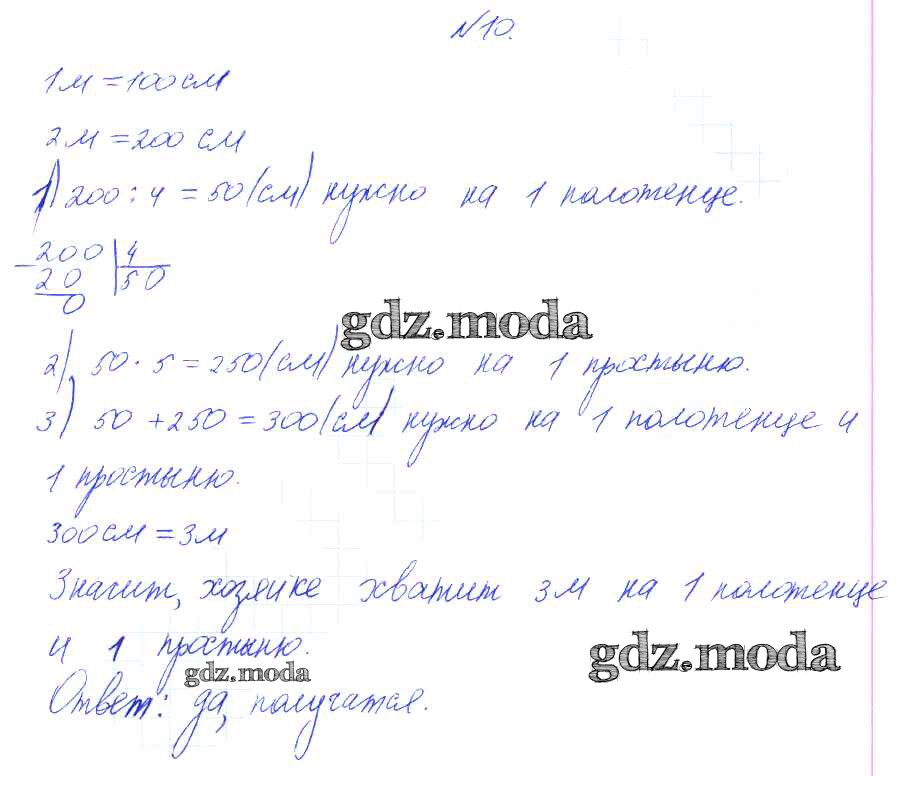 №10.
1м = 100 см
2м = 200 см
1) 200 : 4 = 50 (см) нужно на 1 полотенце.
200 | 4
20 50
0
gdz.moda
2) 50 · 5 = 250 (см) нужно на 1 простыню.
3) 50 + 250 = 300 (см) нужно на 1 полотенце и
1 простыню.
300 см = 3м
Значит, хозяйке хватит 3м на 1 полотенце
и 1 простыню.
gdz.moda
gdz.moda
Ответ: да, получатся.